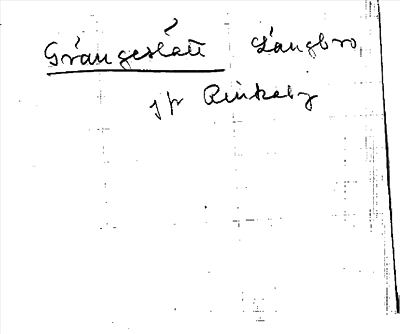 Grångeslätt Långbro
jfr Rinkaby